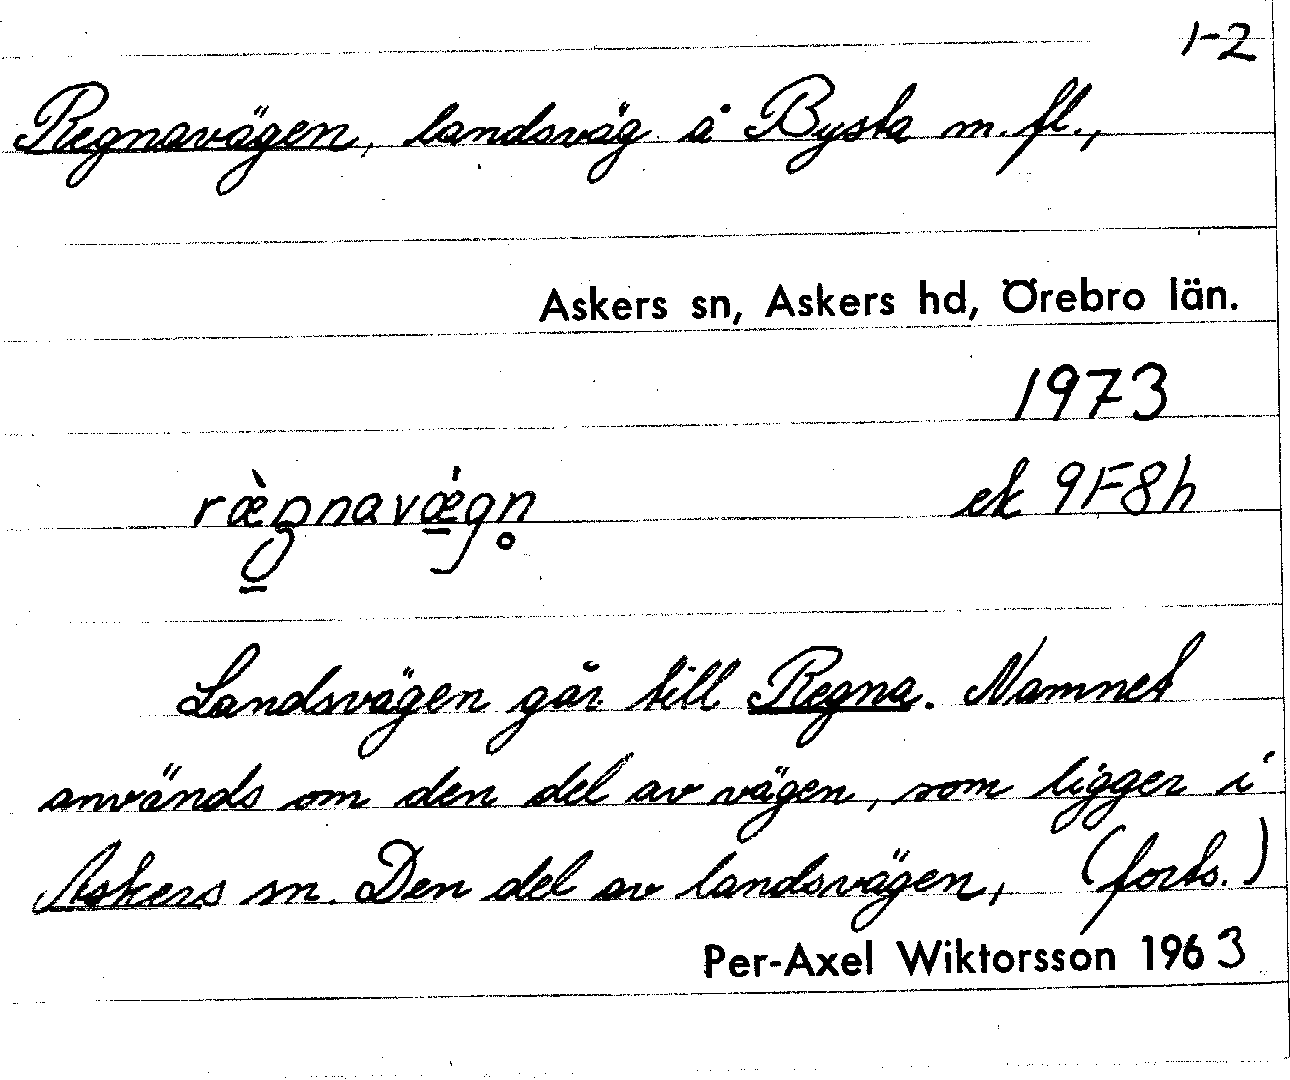 1-2
Regnavägen, landsväg å Bysta m. fl.,
Askers sn, Askers hd, Örebro län.
1973
ræ̀gnavǽgn̥ ek 9F8h
Landsvägen går till Regna. Namnet
används om den del av vägen, som ligger i
Askers sn. Den del av landsvägen, (forts.)
Per-Axel Wiktorsson 1963